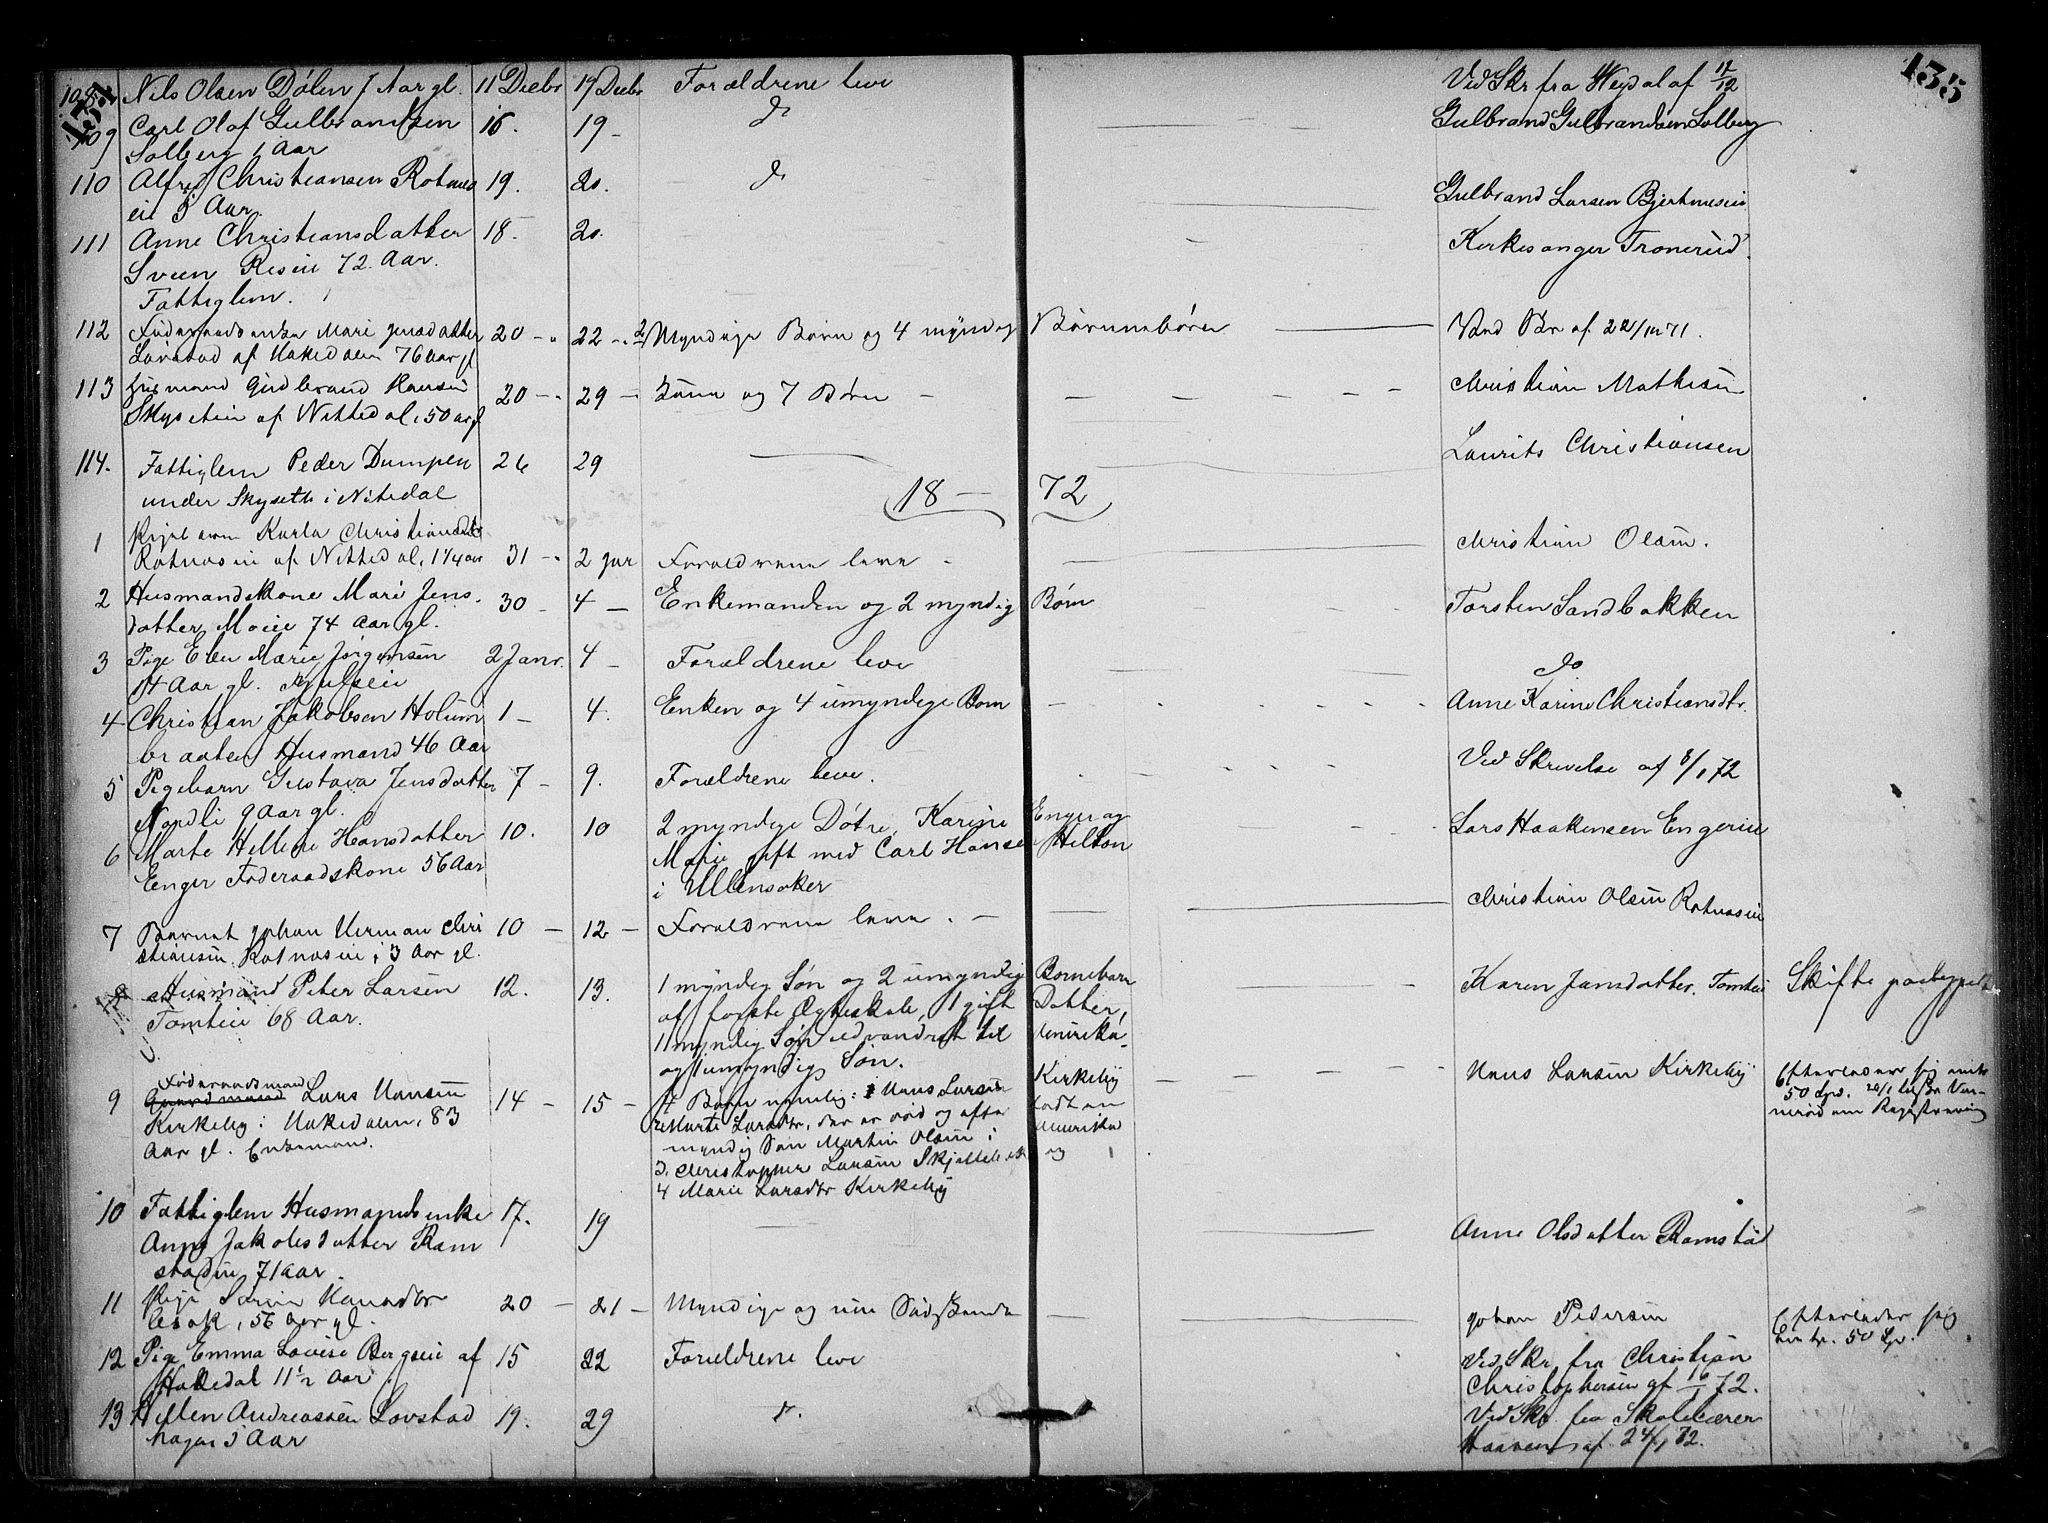 134
135
108 Nils Olsen Dølen 7 Aar gl. 11 Decbr 17 Decbr Forældrene leve Ved Skr fra Heydal af 12/12
109 Carl Olaf Gulbrandsen 16. 19 – do Gulbrand Gulbrandsen Solberg
Solberg 1 Aar
110 Alfred Christiansen Rotnes 19. 20. do Gulbrand Larsen Bjertneseie
eie 5 Aar.
111 Anne Christiansdatter 18. 20. Kirkesanger Tronerud.
Sveen Reseie 72 Aar.
Fattiglem.
112 Føderaadsenke Mari Jensdatter 20 – 22 – 2 Myndige Børn og 4 myndig Børnnebørn Ved Br af 22/12 71.
Løvstad af Hakedalen 76 Aar gl
113 Husmand Gudbrand Hansen 20 – 29 – Kone og 7 Børn – Christian Mathisen
Skyseteie af Nittedal, 50 Aar gl
114. Fattiglem Peder Dumpen 26 29 Laurits Christiansen
under Skyseth i Nitedal
18 – 72
1 Pigebarn Karla Christiansdtr
Rotnæseie af Nittedal, 1 1/4 aar 31 – 2 Jan Forældrene leve – Christian Olsen.
2 Husmandskone Mari Jens 30 – 4 – Enkemanden og 2 myndig Børn Torsten Sandbakken
datter Moeie 74 Aar gl.
3 Pige Elen Marie Jørgensen 2 Janr. 4 – Forældrene leve do
14 Aar gl.
4 Christian Jakobsen Holum 1 – 4. Enken og 4 umyndige Børn – Anne Karine Christiansdtr.
braaten Husmand 46 Aar
5 Pigebarn Gustava Jensdatter 7 – 9. Forældrene leve. Ved Skrivelse af 8/1 72
Nordli 9 Aar gl.
6 Marte Hellene Hansdatter 10. 10 2 myndige Døtre, Karine Enger og Lars Haakensen Engereie
Enger Føderaadskone 56 Aar Marie gift med Carl Hansen Hilton
i Ullensaker
7 Barnet Johan Herman Chri 10 – 12 – Forældrene leve. – Christian Olsen Rotnæseie
stiansen Rotnæseie, 3 Aar gl.
8 Husmand Peter Larsen 12. 13. 1 myndig Søn og 2 umyndig Børnebørn Karen Jansdatter Tomteie Skifte paabegyndt
Tomteie 68 Aar. af første Ægteskab, 1 gift Datter,
1 myndig Søn udvandret til Amerika
og 1 umyndig Søn.
9 Føderaadsmand Gaardmand Lars Hansen 14 – 15 – 4 Børn nemlig: 1 Hans Larsen Kirkeby Hans Larsen Kirkeby Efterlader sig
Kirkeby i Hakedalen, 83 2 Marte Larsdtr, der er død og efter
Aar gl. Enkemand. myndig Søn Martin Olsen i Amerika
3. Christopher Larsen og
4 Marie Larsdtr Kirkeby
50 Spd. om Registrering
10 Fattiglem Husmandsenke 17. 19 Anne Olsdatter Ramstad
Anne Jakobsdatter Ram
stadeie 71 aar.
11 Pige Hansdtr 20 – 21 – Myndige og Johan Pedersen Efterlader sig
56 Aar gl. 50 Spd.
12 Pige Emma Lovise Bergseie af 15 22 Forældrene leve Ved Skr. fra Christian
Hakedal 11 1/2 Aar Christophersen af 16/1 72.
13 Hellen Andreassen Løvstad 19. 29 do Ved Skr. fra Skolelærer
hagen 5 Aar Haavens af 24/1 72.